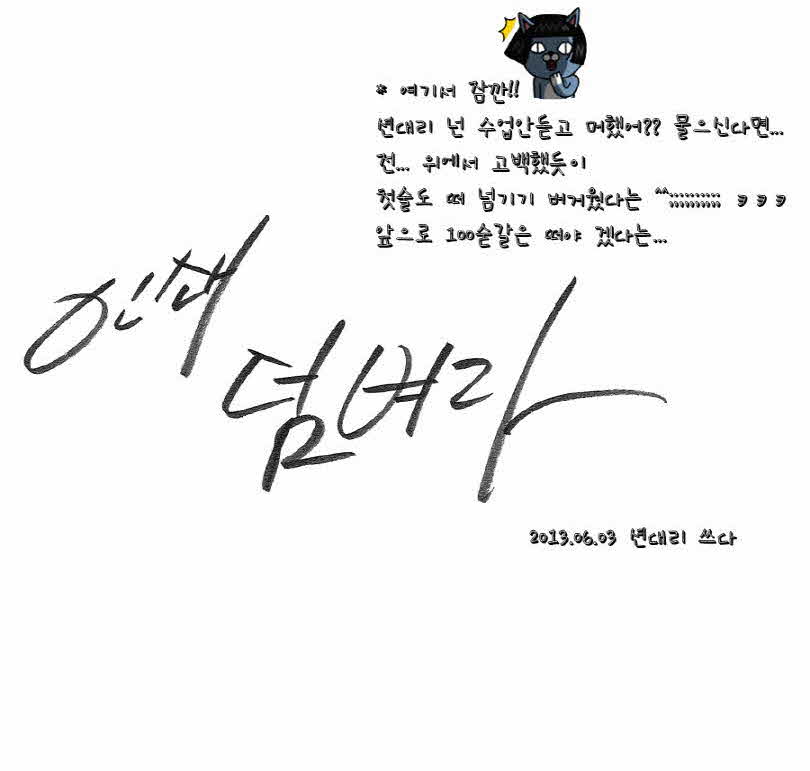 * 여기서 잠깐!!
변대리 넌 수업안듣고 머했어?? 물으신다면...
전... 위에서 고백했듯이
첫술도 떠 넘기기 버거웠다는 ^^;;;;;;;;;; ㅋㅋㅋ
앞으로 100숟갈은 떠야 겠다는...
인생
덤벼라
2013.06.03 변대리 쓰다